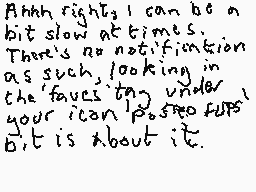 Ahhh right, I can be a
bit slow at times.
There's no notification
as such, looking in
the 'faves' tag under
your ican 'posted flips'
bit is about it.